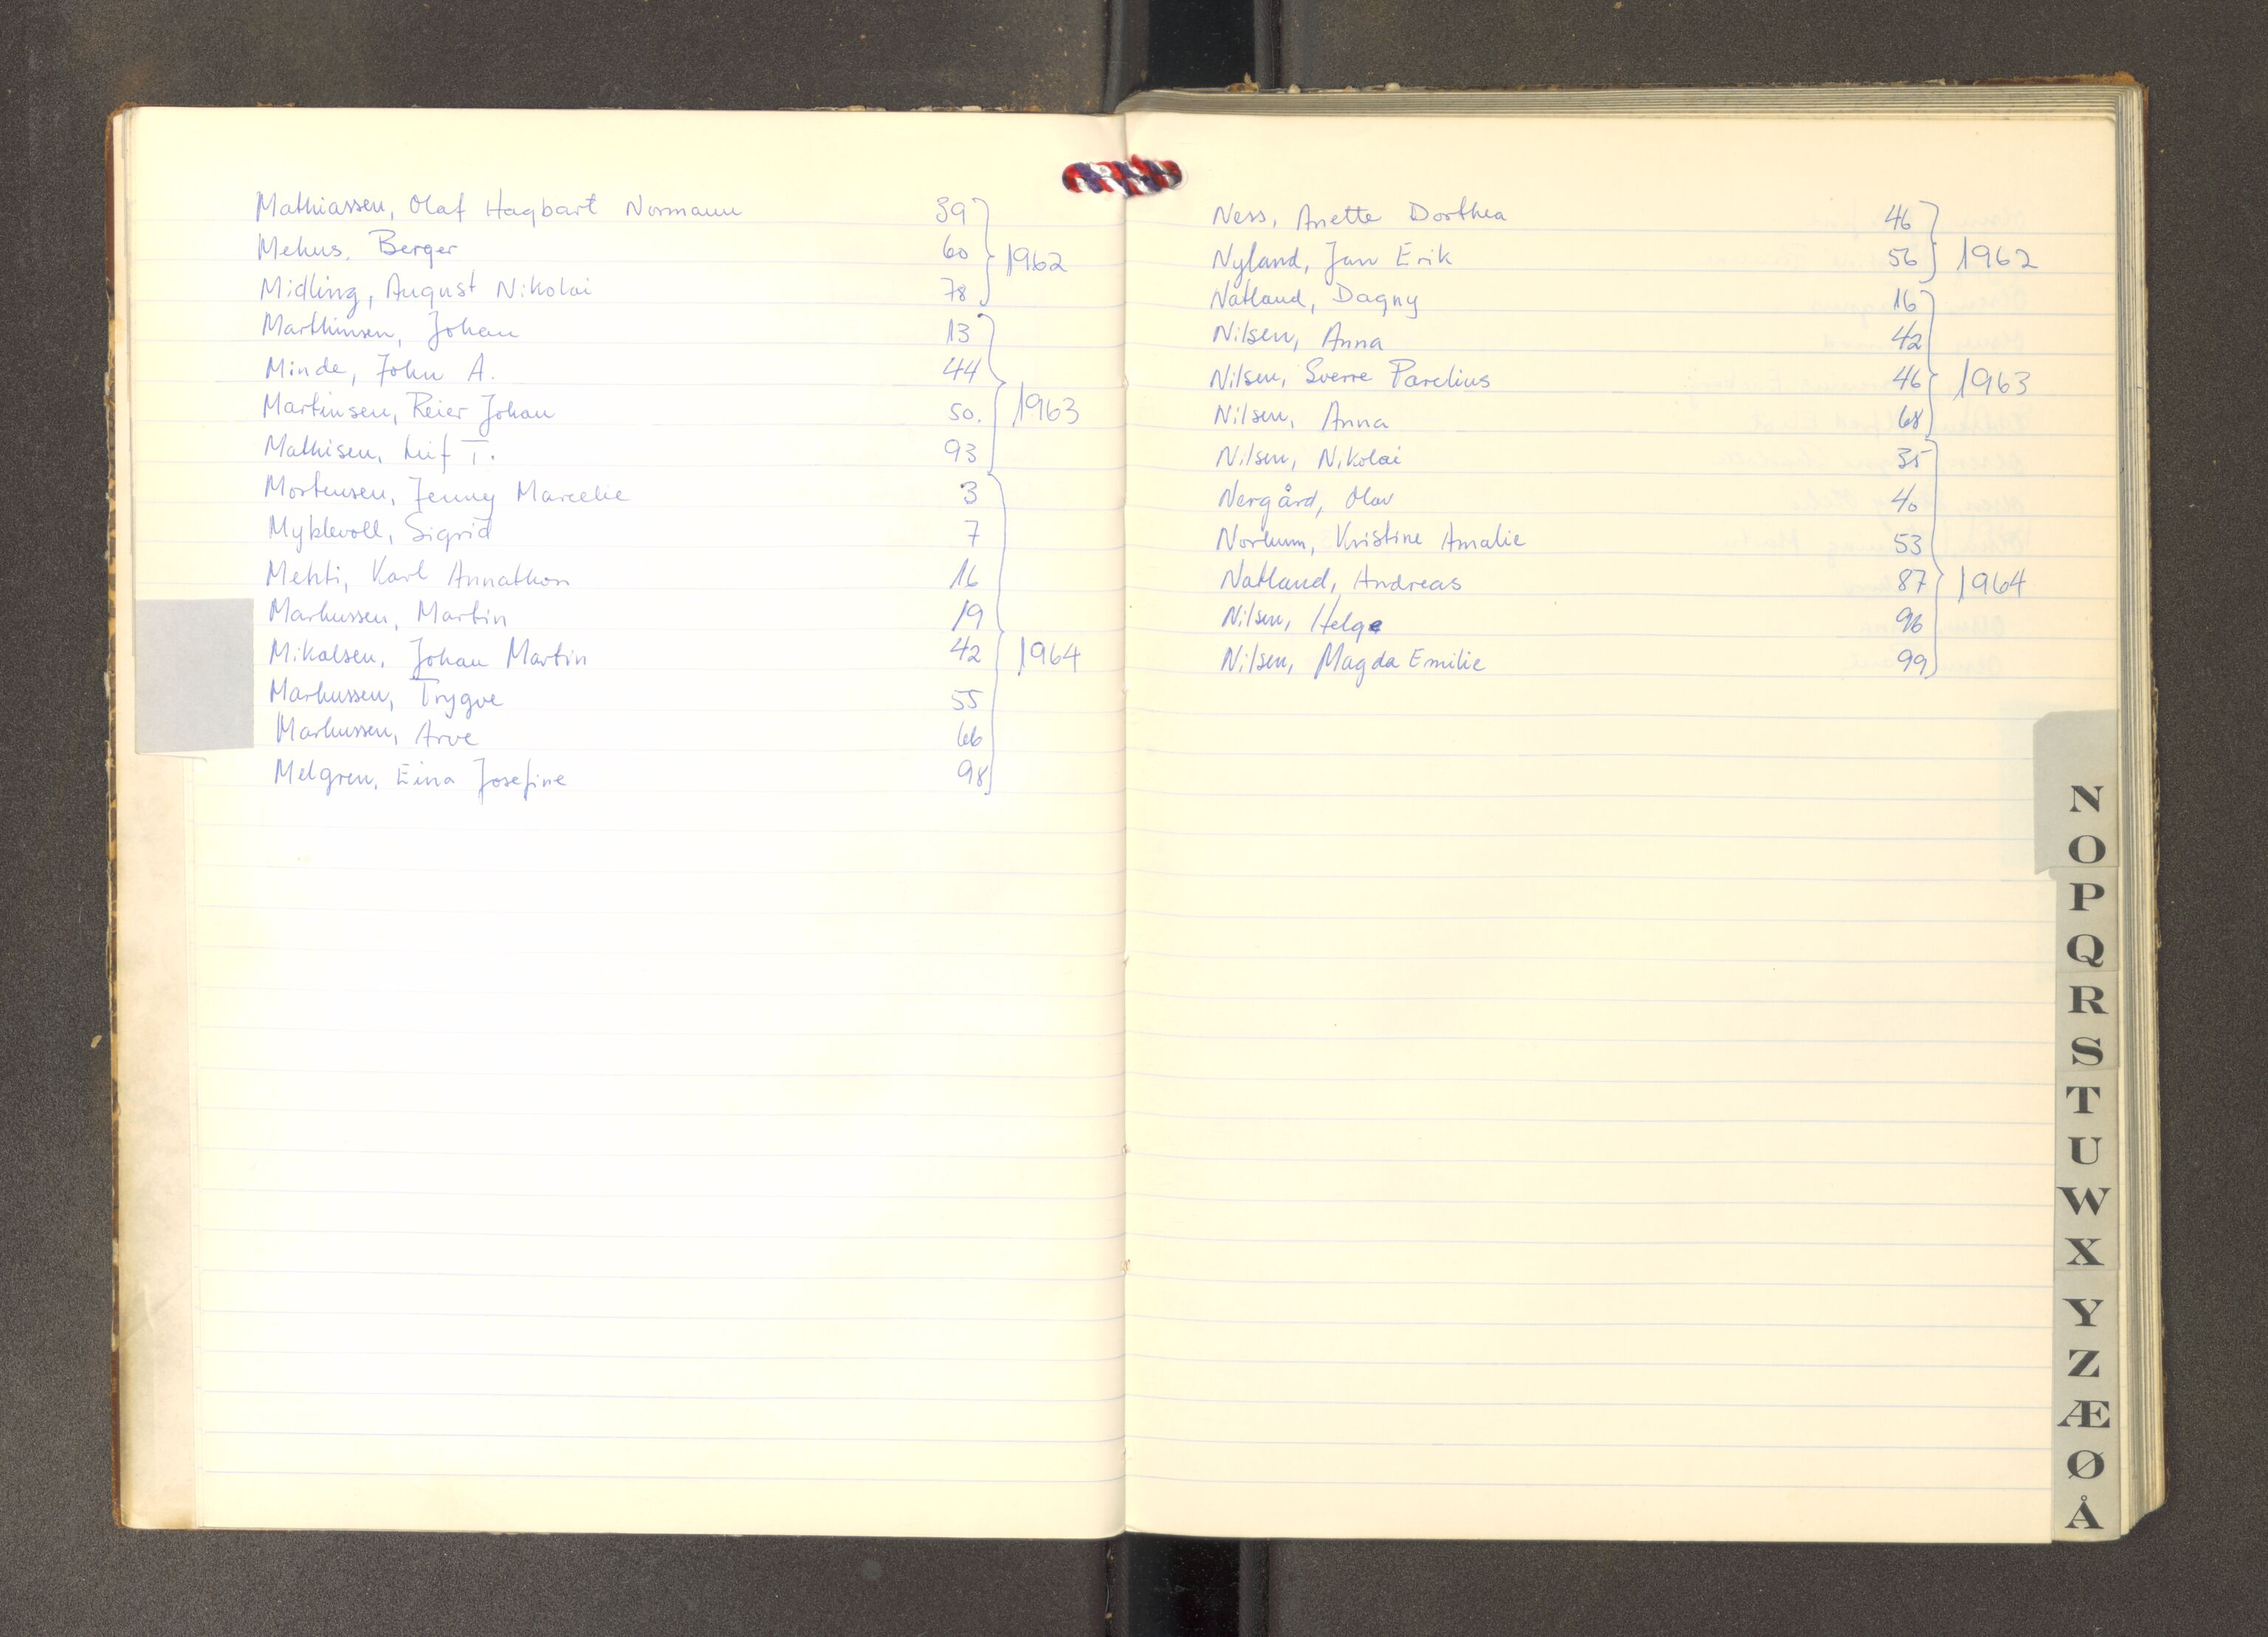 Mathiassen, Olaf Hagbart Normann 39
Mehus, Berger 60 1962
Midling, August Nikolai 78
Marthinsen, Johan 13
Minde, John A. 44
Martinsen, Reier Johan 50. 1963
Mathisen, Leif T. 93
Mortensen, Jenny Marcelie 3
Myklevoll, Sigrid 7
Mehti, Karl Annathon 16
Markussen, Martin 19
Mikalsen, Johan Martin 42 1964
Markussen, Trygve 55
Markussen, Arve 66
Melgren, Eina Josefine 98
Ness, Anette Dorthea 46
Nyland, Jan Erik 56 1962
Natland, Dagny 16
Nilsen, Anna 42
Nilsen, Sverre Parelius 46 1963
Nilsen, Anna 68
Nilsen, Nikolai 35
Nergård, Olav 40
Norkum, Kristine Amalie 53
Natland, Andreas 87 1964
Nilsen, Helge 96
Nilsen, Magda Emilie 99
N
O
P
Q
R
S
T
U
W
X
Y
Z
Æ
Ø
Å